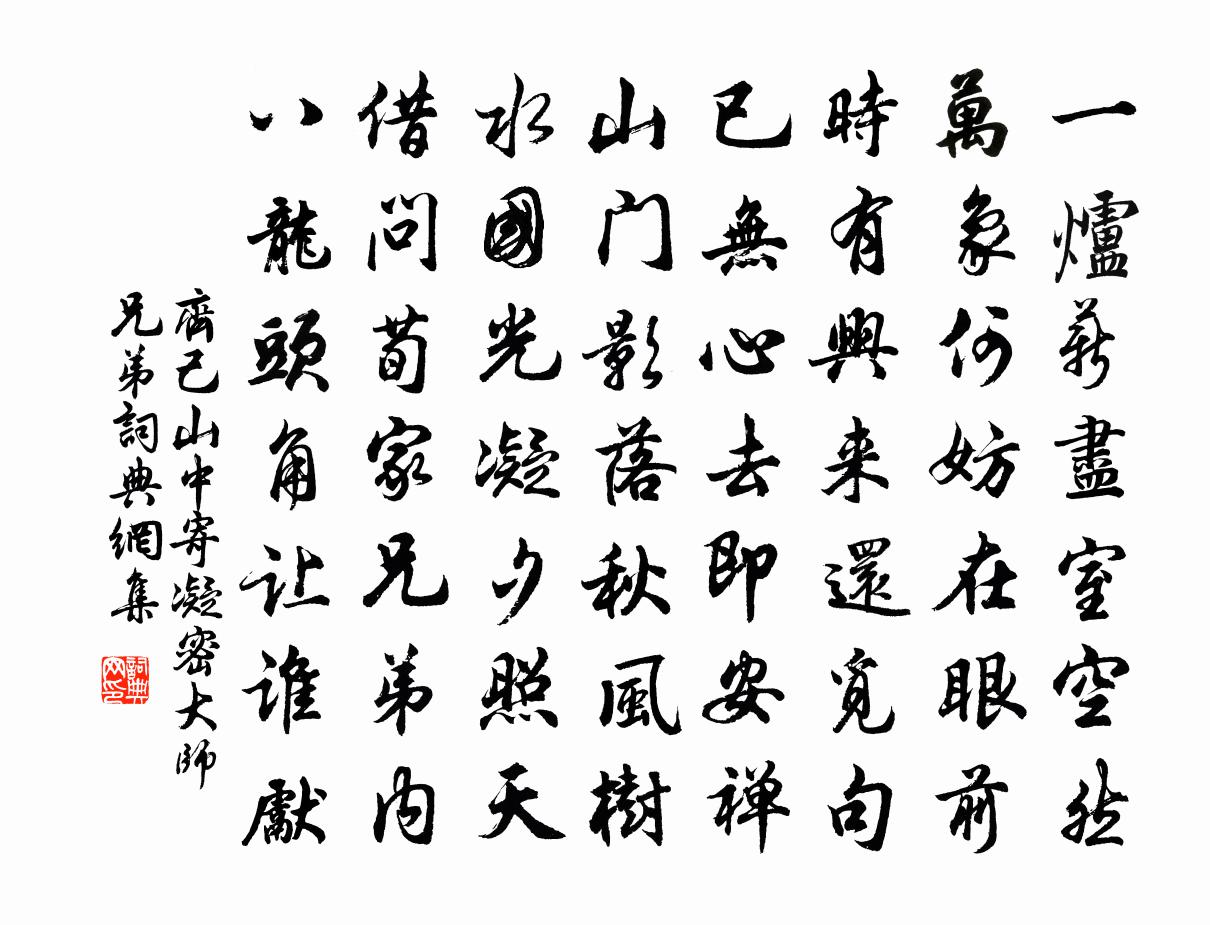 一爐薪盡室空然
萬象何妨在眼前
時有興来還覓句
已無心去即安禅
山门影落秋風樹
水國光凝夕照天
借問荀家兄弟内
八龍頭角让誰獻
齊己山中寄凝密大師
兄弟詞典網集
詞典网印